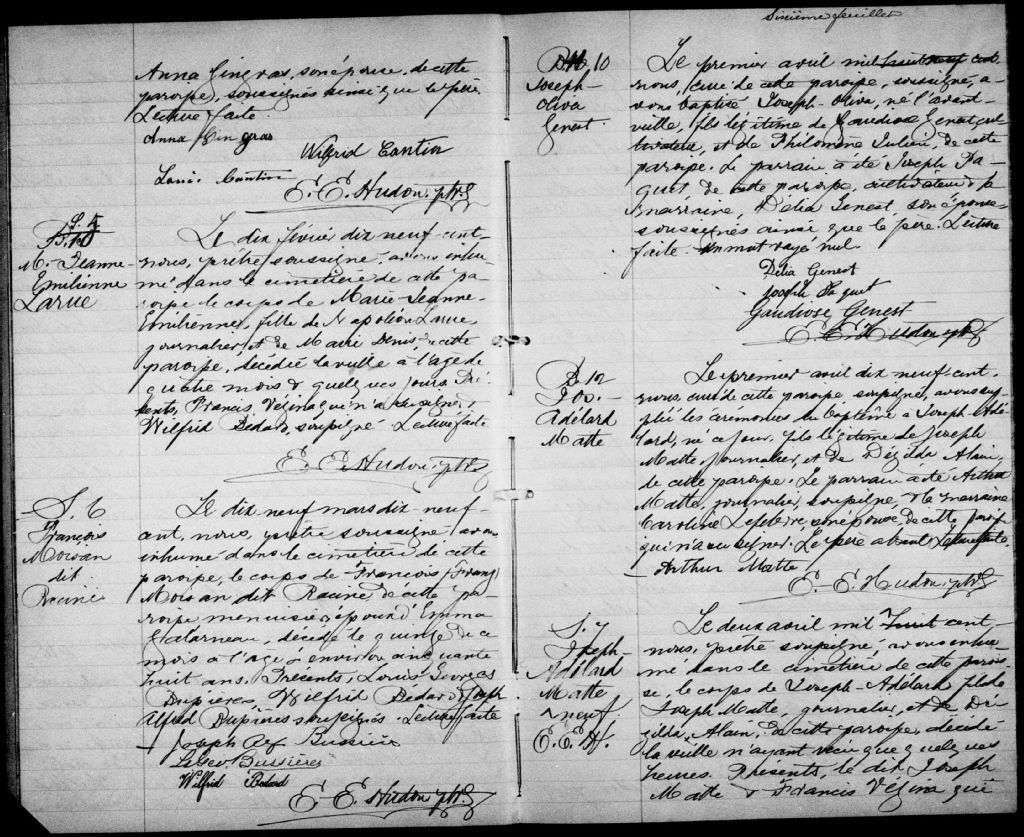 Anna Gingras, son épouse, de cette
paroisse, soussignés ainsi que le père
Lecture faite
Anna Gingras
Wilfrid Cantin
Louis Cantin
E. E. Hudon, ptre
S. 5
M.-Jeanne-
Emilienne
Larue
Le dix février dix neuf cent
nous, prêtre soussigné, avons inhu-
mé dans le cimetière de cette pa-
roisse le corps de Marie-Jeanne-
Emilienne, fille de Napoléon Larue,
journalier, et de Marie Denis, de cette
paroisse, décédée la veille à l'âge de
quatre mois & quelques jours. Pré-
sents, Francis Vézina qui n'a su signer &
Wilfrid Bedard, soussigné. Lecture faite
E. E. Hudon, ptre
S. 6
François
Moisan
dit
Racine
Le dix neuf mars dix-neuf-
cent, nous, prêtre soussigné, avons
inhumé dans le cimetière de cette
paroisse, le corps de François (Franç)
Moisan dit Racine de cette pa-
roisse menuisier, époux d'Emma
Galarneau, décédé le quinze de ce
mois à l'âge d'environ cinquante
huit ans. Présents, Louis Georges
Bussières, Wilfrid Bedard & Joseph
Alfred Bussières soussignés. Lecture faite
Joseph Bussières
Bussières
Wilfrid Bedard
E. E. Hudon, ptre
Sixième feuillet
B. 10
Joseph-
Oliva
Genest
Le premier avril mil cent
nous, curé de cette paroisse, soussigné, a-
vons baptisé Joseph-Oliva, né l'avant-
veille, fils légitime de Gaudiose Genest, cul-
tivateur, et de Philomène Julien, de cette
paroisse. Le parrain a été Joseph Pa-
quet de cette paroisse, cultivateur & la
marraine, Délia Genest, son épouse
soussignés ainsi que le père. Lecture
faite. Un mot rayé nul
Délia Genest
Joseph Paquet
Gaudiose Genest
E. E. Hudon, ptre
B. 12
Jos.-
Adélard
Matte
Le premier avril dix neuf-cent-
nous, curé de cette paroisse, soussigné, avons sup-
pléé les cérémonies du baptême à Joseph Adé-
lard, né ce jour, fils légitime de Joseph
Matte, journalier, et de Dézilda Alain,
de cette paroisse. Le parrain a été Arthur
Matte, journalier, soussigné, & la marraine
Caroline Lefebvre, son épouse, de cette paroisse
qui n'a su signer. Le père absent. Lecture faite.
Arthur Matte
E. E. Hudon, ptre
S. 7
Joseph-
Adélard
Matte
^ neuf.
E. E. H.
Le deux avril mil huit cent-
nous, prêtre soussigné, avons inhu-
mé dans le cimetière de cette parois-
se, le corps de Joseph-Adélard fils de
Joseph Matte, journalier, et de Dé-
zilda Alain, de cette paroisse, décédé
la veille n'ayant vécu que quelques
heures. Présents, le dit Joseph
Matte & Francis Vézina qui